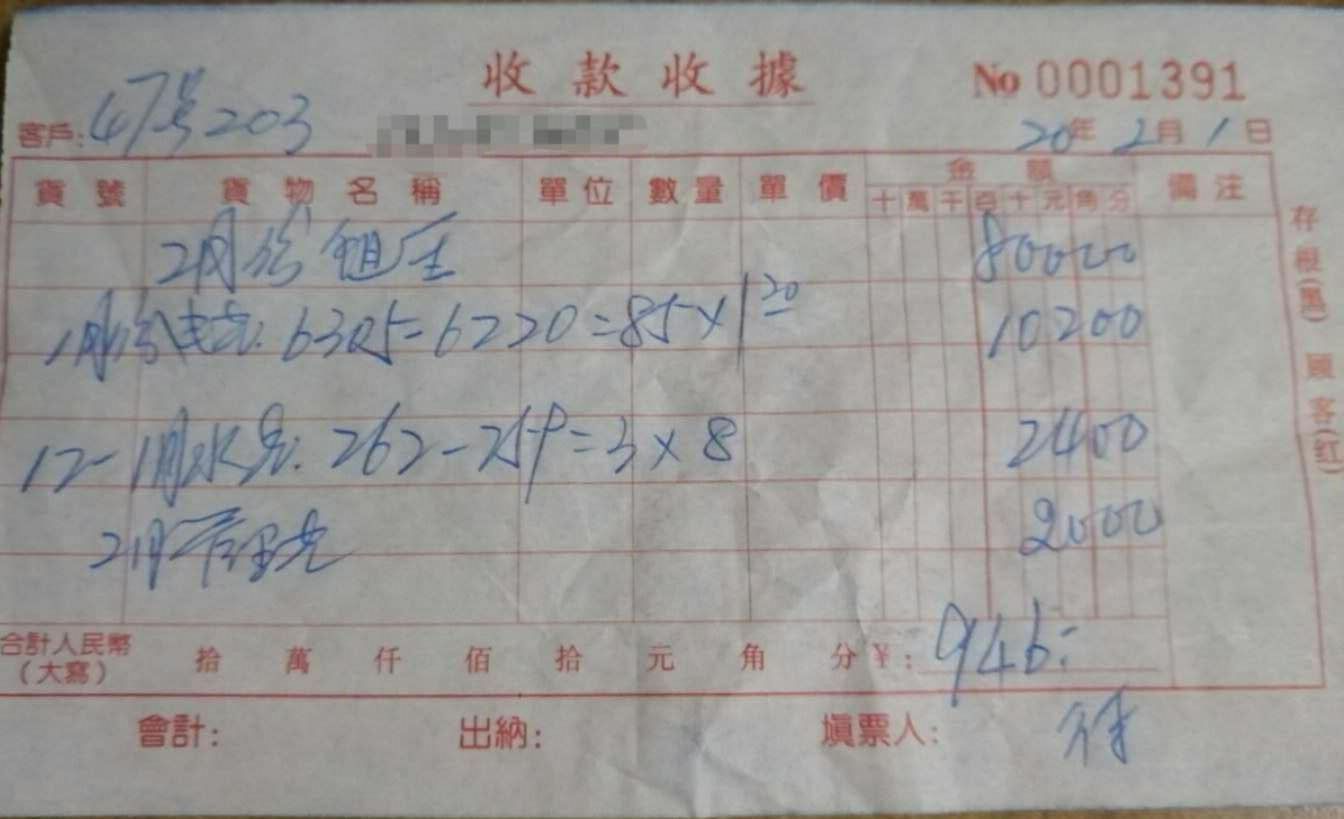 收款收據
No 0001391
客戶: 47号203
20年 2月 1日
貨號 貨物名稱 單位 數量 單價 金額 備注
十 萬 千 百 十 元 角 分
2月份 租金 80000
1月份电费: 6305-6220=85×1.20 10200
12-1月水费: 262-259=3×8 2400
2月管理费 2000
合計人民幣(大寫) 拾 萬 仟 佰 拾 元 角 分 ¥: 946:
會計: 出納: 填票人: 徐
存根(黑) 顧客(红)